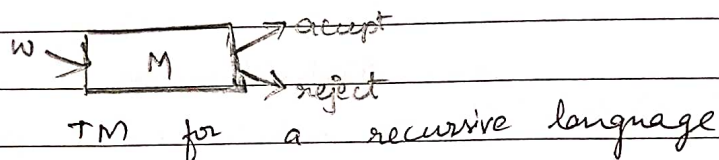 accept
w M
reject
TM for a recursive language